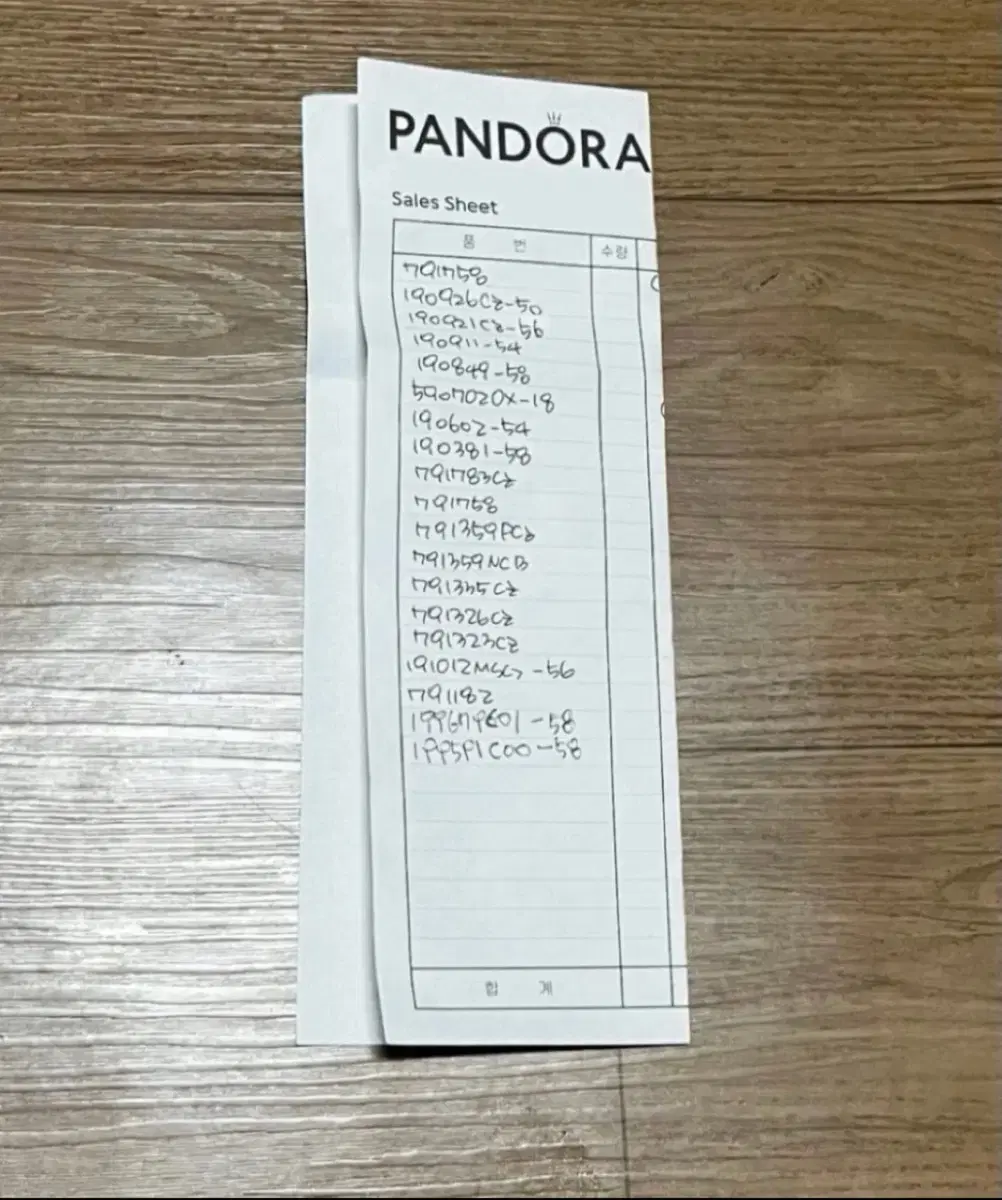 PANDORA
Sales Sheet
품 번 수량
791758
190926CZ-50
190921CZ-56
190911-54
190849-58
590702OX-18
190602-54
190381-58
791783CZ
791758
791359PCZ
791359NCB
791335CZ
791326CZ
791323CZ
-56
791182
199679C01-58
199591C00-58
합 계